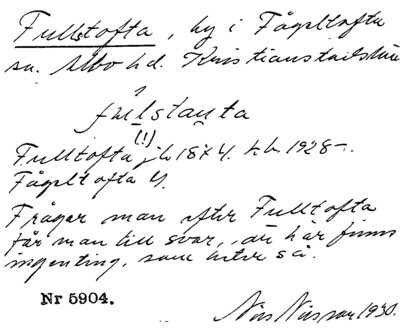 Fulltofta, by i Fågeltofta
sn. Albo hd. Kristianstads län
fúlstauta
(!)
Fulltofta jb 1874. kb. 1928–.
Fågeltofta
Frågar man efter Fulltofta
får man till svar, att här finns
ingenting, som heter så.
Nr 5904.
Nils Nilsson 1930.